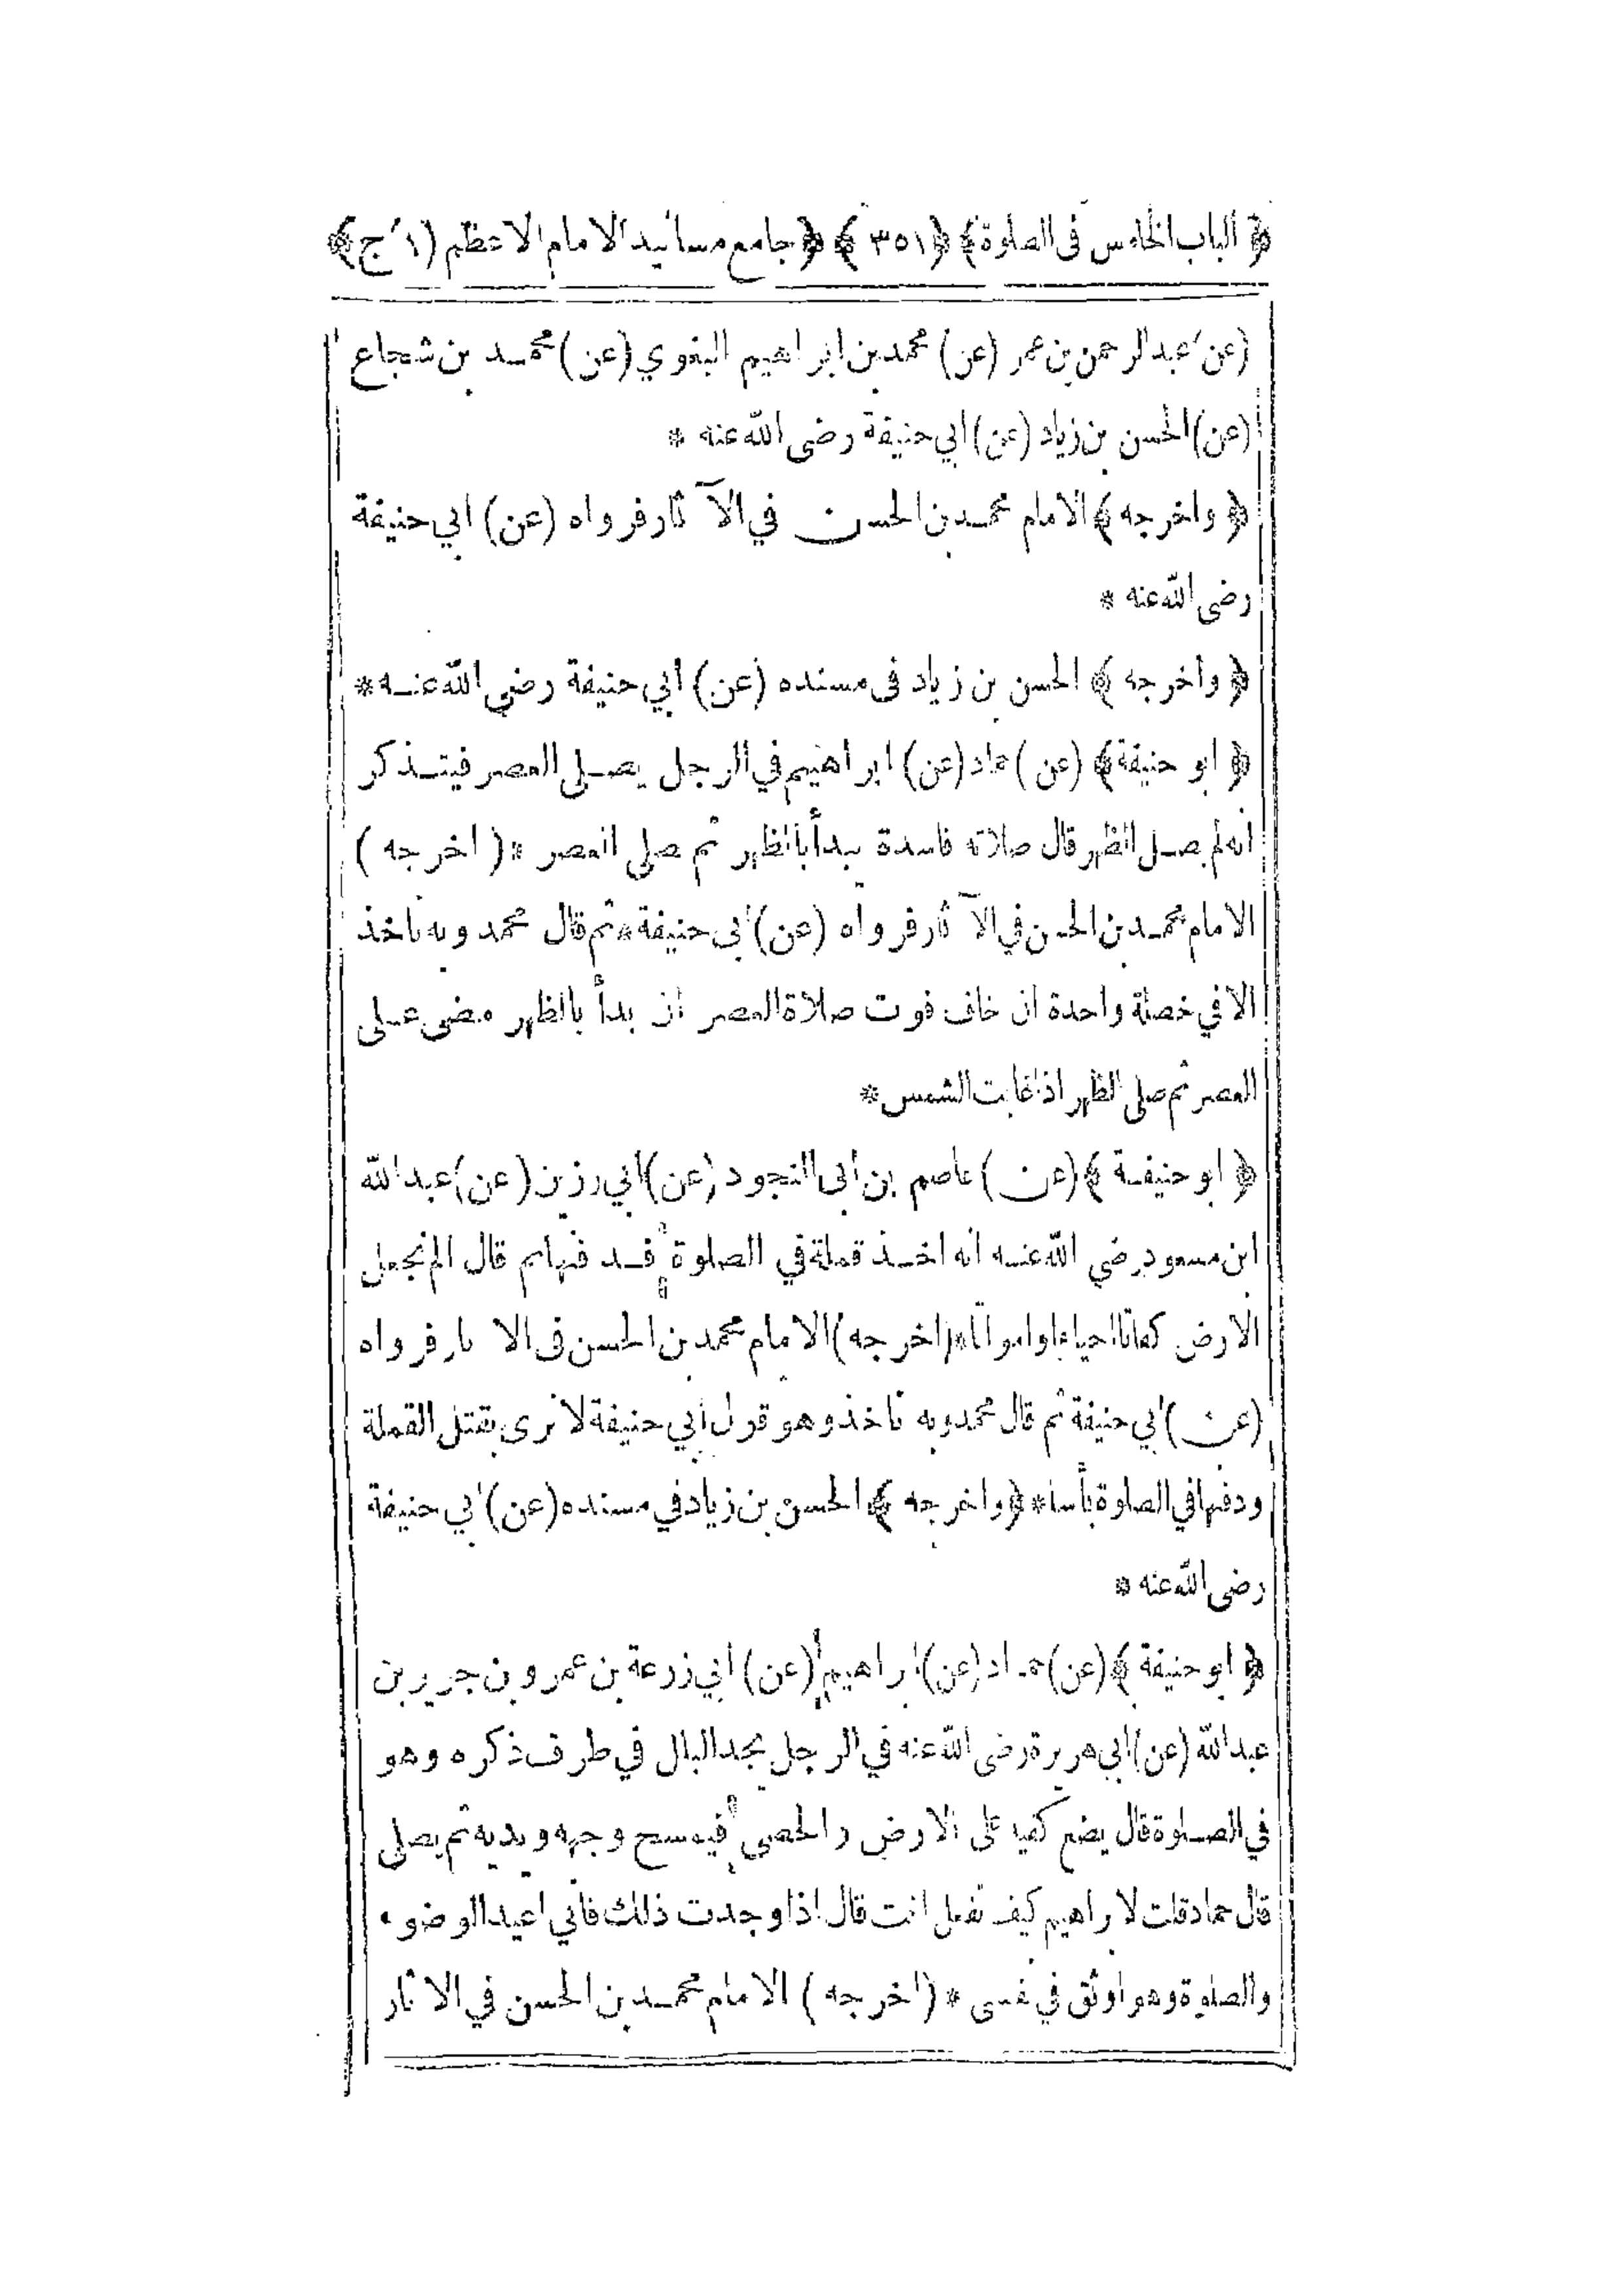 ﴿ الباب الخامس فى الصلوة ﴾ ﴿ ٣٥١ ﴾ ﴿ جامع مسانيد الامام الاعظم (١ ج) ﴾
(عن) عبد الرحمن بن عمر (عن) محمد بن ابراهيم البغوي (عن) محمد بن شجاع
(عن) الحسن بن زياد (عن) ابي حنيفة رضى الله عنه *
﴿ واخرجه ﴾ الامام محمد بن الحسن في الآثار فرواه (عن) ابي حنيفة
رضى الله عنه *
﴿ واخرجه ﴾ الحسن بن زياد فى مسنده (عن) ابي حنيفة رضي الله عنه *
﴿ ابو حنيفة ﴾ (عن) حماد (عن) ابراهيم في الرجل يصلى العصر فيتذكر
انه لم يصل الظهر قال صلاته فاسدة يبدأ بالظهر ثم صلى العصر * ( اخرجه )
الامام محمد بن الحسن في الآثار فرواه (عن) ابى حنيفة * ثم قال محمد وبه ناخذ
الا في خصلة واحدة ان خاف فوت صلاة العصر ان بدأ بالظهر مضى على
العصر ثم صلى الظهر اذا غابت الشمس *
﴿ ابو حنيفة ﴾ (عن) عاصم بن ابى النجود (عن) ابي رزين (عن) عبد الله
ابن مسعود رضي الله عنه انه اخذ قملة في الصلوة فدفنها ثم قال الم نجعل
الارض كفاتا احياء وامواتا * (اخرجه) الامام محمد بن الحسن فى الاثار فرواه
(عن) ابي حنيفة ثم قال محمد وبه ناخذ وهو قول أبي حنيفة لا نرى بقتل القملة
ودفنها في الصلوة بأسا * ﴿ واخرجه ﴾ الحسن بن زياد في مسنده (عن) ابي حنيفة
رضى الله عنه *
﴿ ابو حنيفة ﴾ (عن) حماد (عن) ابراهيم (عن) ابي زرعة بن عمرو بن جرير بن
عبد الله (عن) ابي هريرة رضى الله عنه في الرجل يجد البلل في طرف ذكره وهو
في الصلوة قال يضع كفيه على الارض والحصى فيمسح وجهه ويديه ثم يصلى
قال حماد قلت لابراهيم كيف تفعل انت قال اذا وجدت ذلك فاني اعيد الوضوء
والصلوة وهو اوثق في نفسى * ( اخرجه ) الامام محمد بن الحسن في الاثار